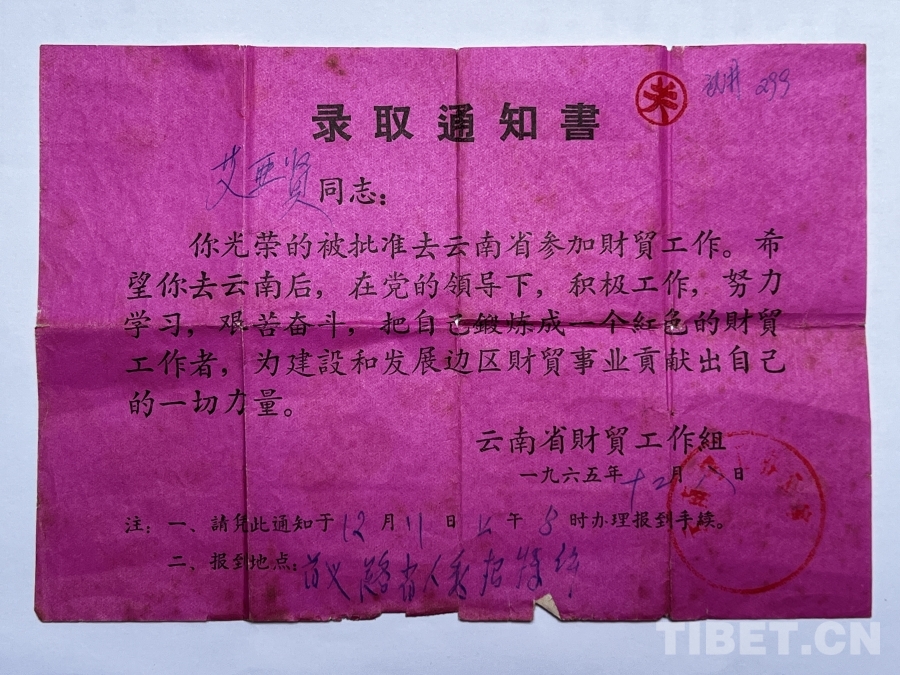 299
录取通知書
艾亚贤同志：
你光荣的被批准去云南省参加財貿工作。希
望你去云南后，在党的領导下，积极工作，努力
学习，艰苦奋斗，把自己鍛炼成一个紅色的財貿
工作者，为建設和发展边区財貿事业貢献出自己
的一切力量。
云南省財貿工作組
一九六五年十二月 日
注：一、請凭此通知于12月11日上午8时办理报到手续。
二、报到地点：
TIBET.CN